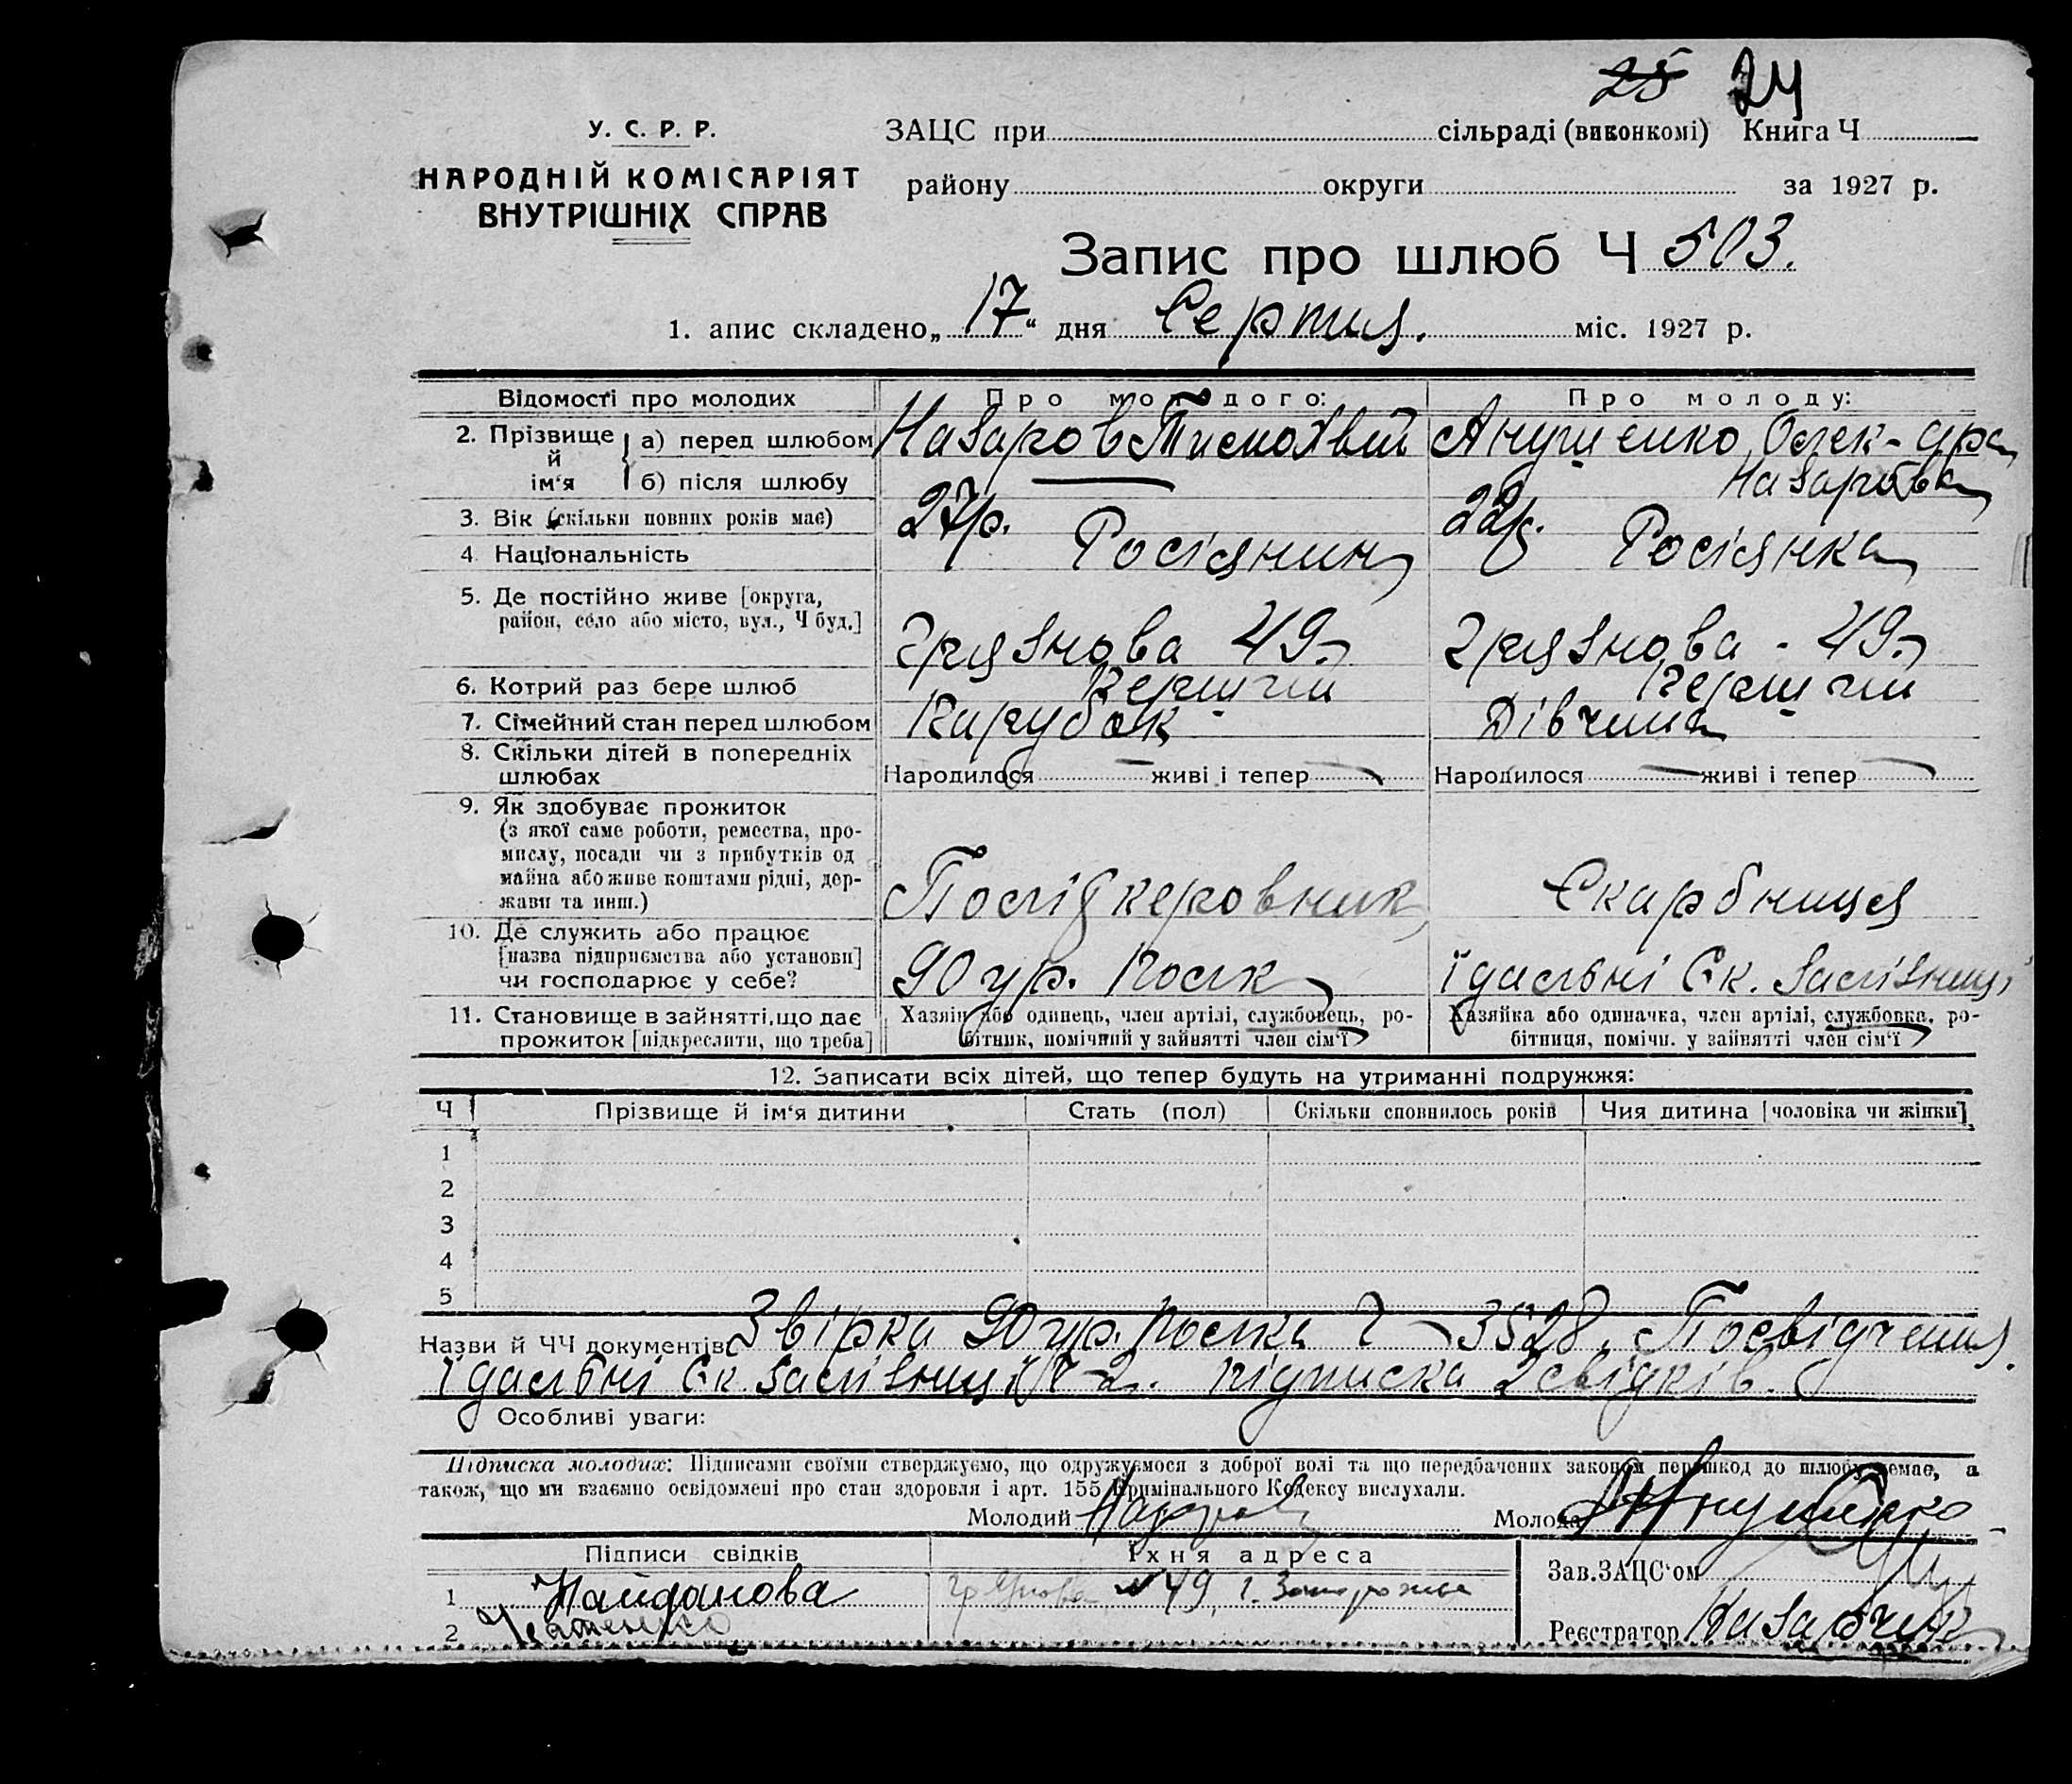 25 24
У. С. Р. Р.
НАРОДНІЙ КОМІСАРІЯТ
ВНУТРІШНІХ СПРАВ
ЗАЦС при сільраді (виконкомі) Книга Ч
району округи за 1927 р.
Запис про шлюб Ч 503.
1. апис складено „17“ дня Серпня. міс. 1927 р.
Відомості про молодих Про молодого: Про молоду:
2. Прізвище й ім‘я а) перед шлюбом Назаров Тимохвій Анущенко Олек-дра
б) після шлюбу — Назарова
3. Вік (скільки повних років має) 27р. 22р.
4. Національність Росіянин Росіянка
5. Де постійно живе [округа,
район, село або місто, вул., Ч буд.] Грязнова 49 Грязнова - 49
6. Котрий раз бере шлюб Перший Перший
7. Сімейний стан перед шлюбом Парубок Дівчина
8. Скільки дітей в попередніх
шлюбах Народилося — живі і тепер — Народилося — живі і тепер —
9. Як здобуває прожиток
(з якої саме роботи, ремества, про-
мислу, посади чи з прибутків од
майна або живе коштами рідні, дер-
жави та инш.) Скарбниця
10. Де служить або працює
[назва підприємства або установи]
чи господарює у себе? 90 ур. полк їдальні Єк. Залізниці
11. Становище в зайнятті, що дає
прожиток [підкреслити, що треба]
Хазяїн або одинець, член артілі, службовець, ро-
бітник, помічний у зайнятті член сім‘ї
Хазяйка або одиначка, член артілі, службовка, ро-
бітниця, помічн. у зайнятті член сім‘ї
12. Записати всіх дітей, що тепер будуть на утриманні подружжя:
Ч Прізвище й ім‘я дитини Стать (пол) Скільки сповнилось років Чия дитина [чоловіка чи жінки]
1
2
3
4
5
Назви й ЧЧ документів: Звірка 90 ур. полка Ч — 3528. Посвідчення
їдальні Єк. залізниці Ч-2. підписка 2 свідків.
Особливі уваги:
Підписка молодих: Підписами своїми стверджуємо, що одружуємося з доброї волі та що передбачених законом перешкод до шлюбу немає, а
також, що ми взаємно освідомлені про стан здоровля і арт. 155 Кримінального Кодексу вислухали.
Молодий Назаров Молода Анущенко
Підписи свідків Їхня адреса Зав. ЗАЦС‘ом
1 Найданова Грязнова № 49, г. Запорожье
2 Реєстратор